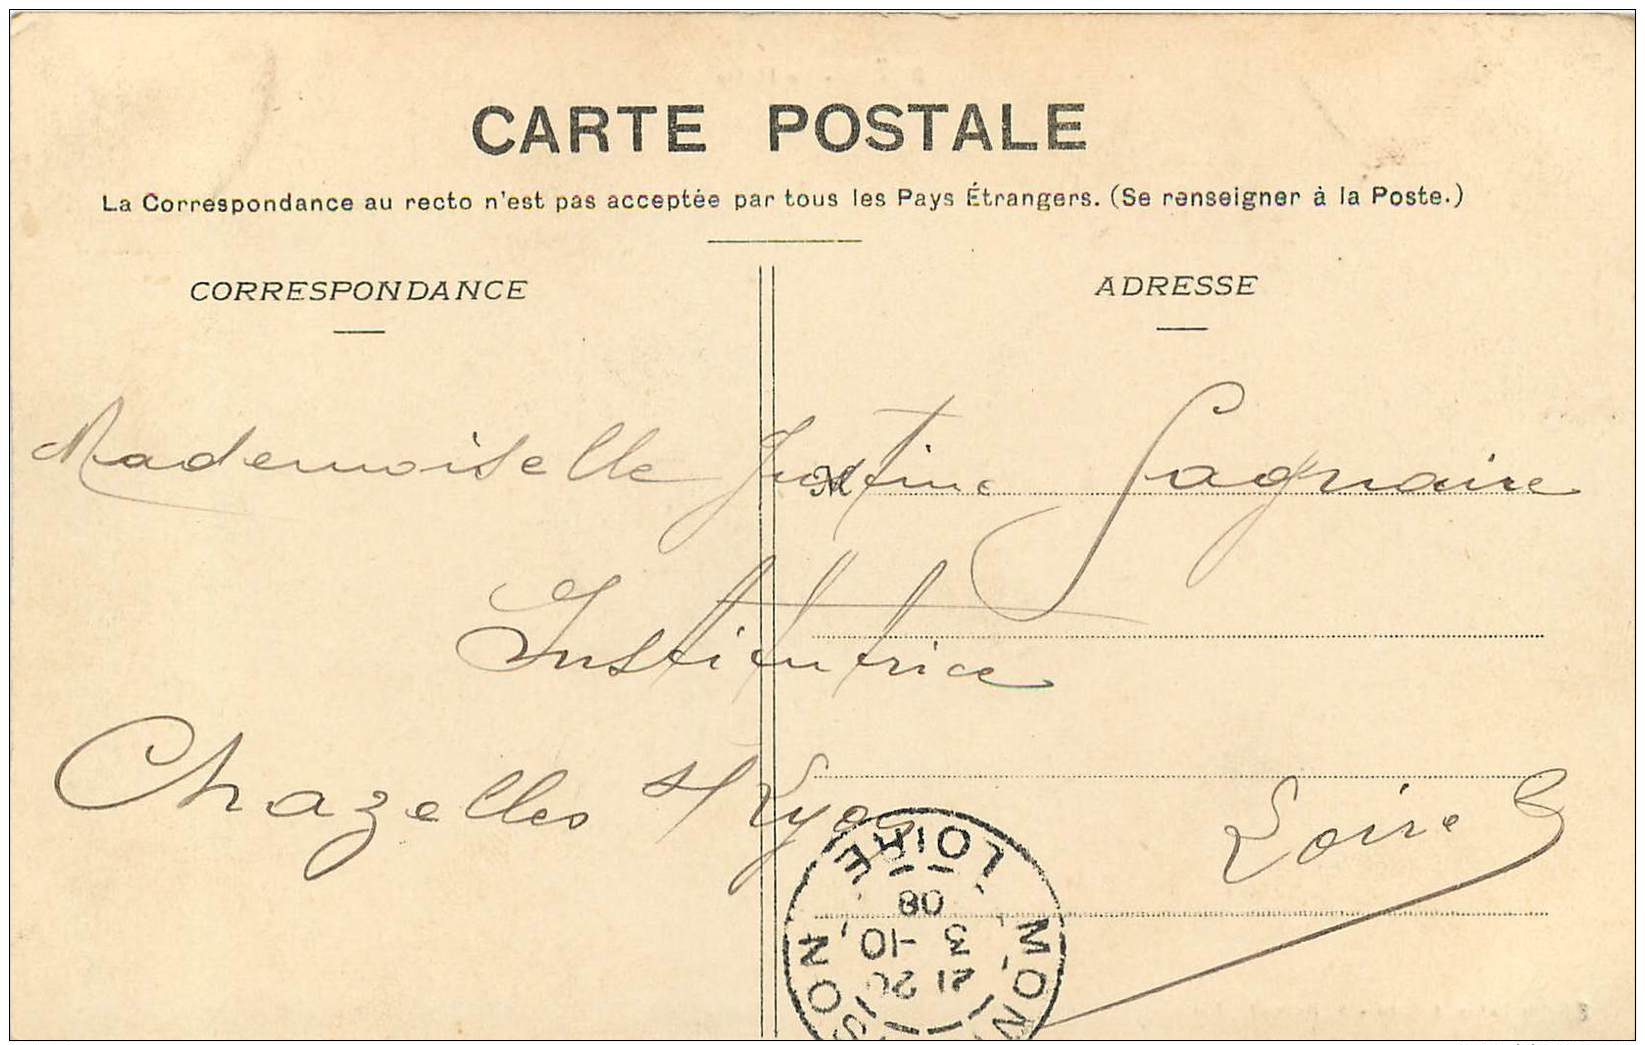 CARTE POSTALE
La Correspondance au recto n'est pas acceptée par tous les Pays Étrangers. (Se renseigner à la Poste.)
CORRESPONDANCE
ADRESSE
Mademoiselle Justine Gagnaire
M
Institutrice
Chazelles s/ Lyon
Loire
21 20
3 -10
08
LOIRE